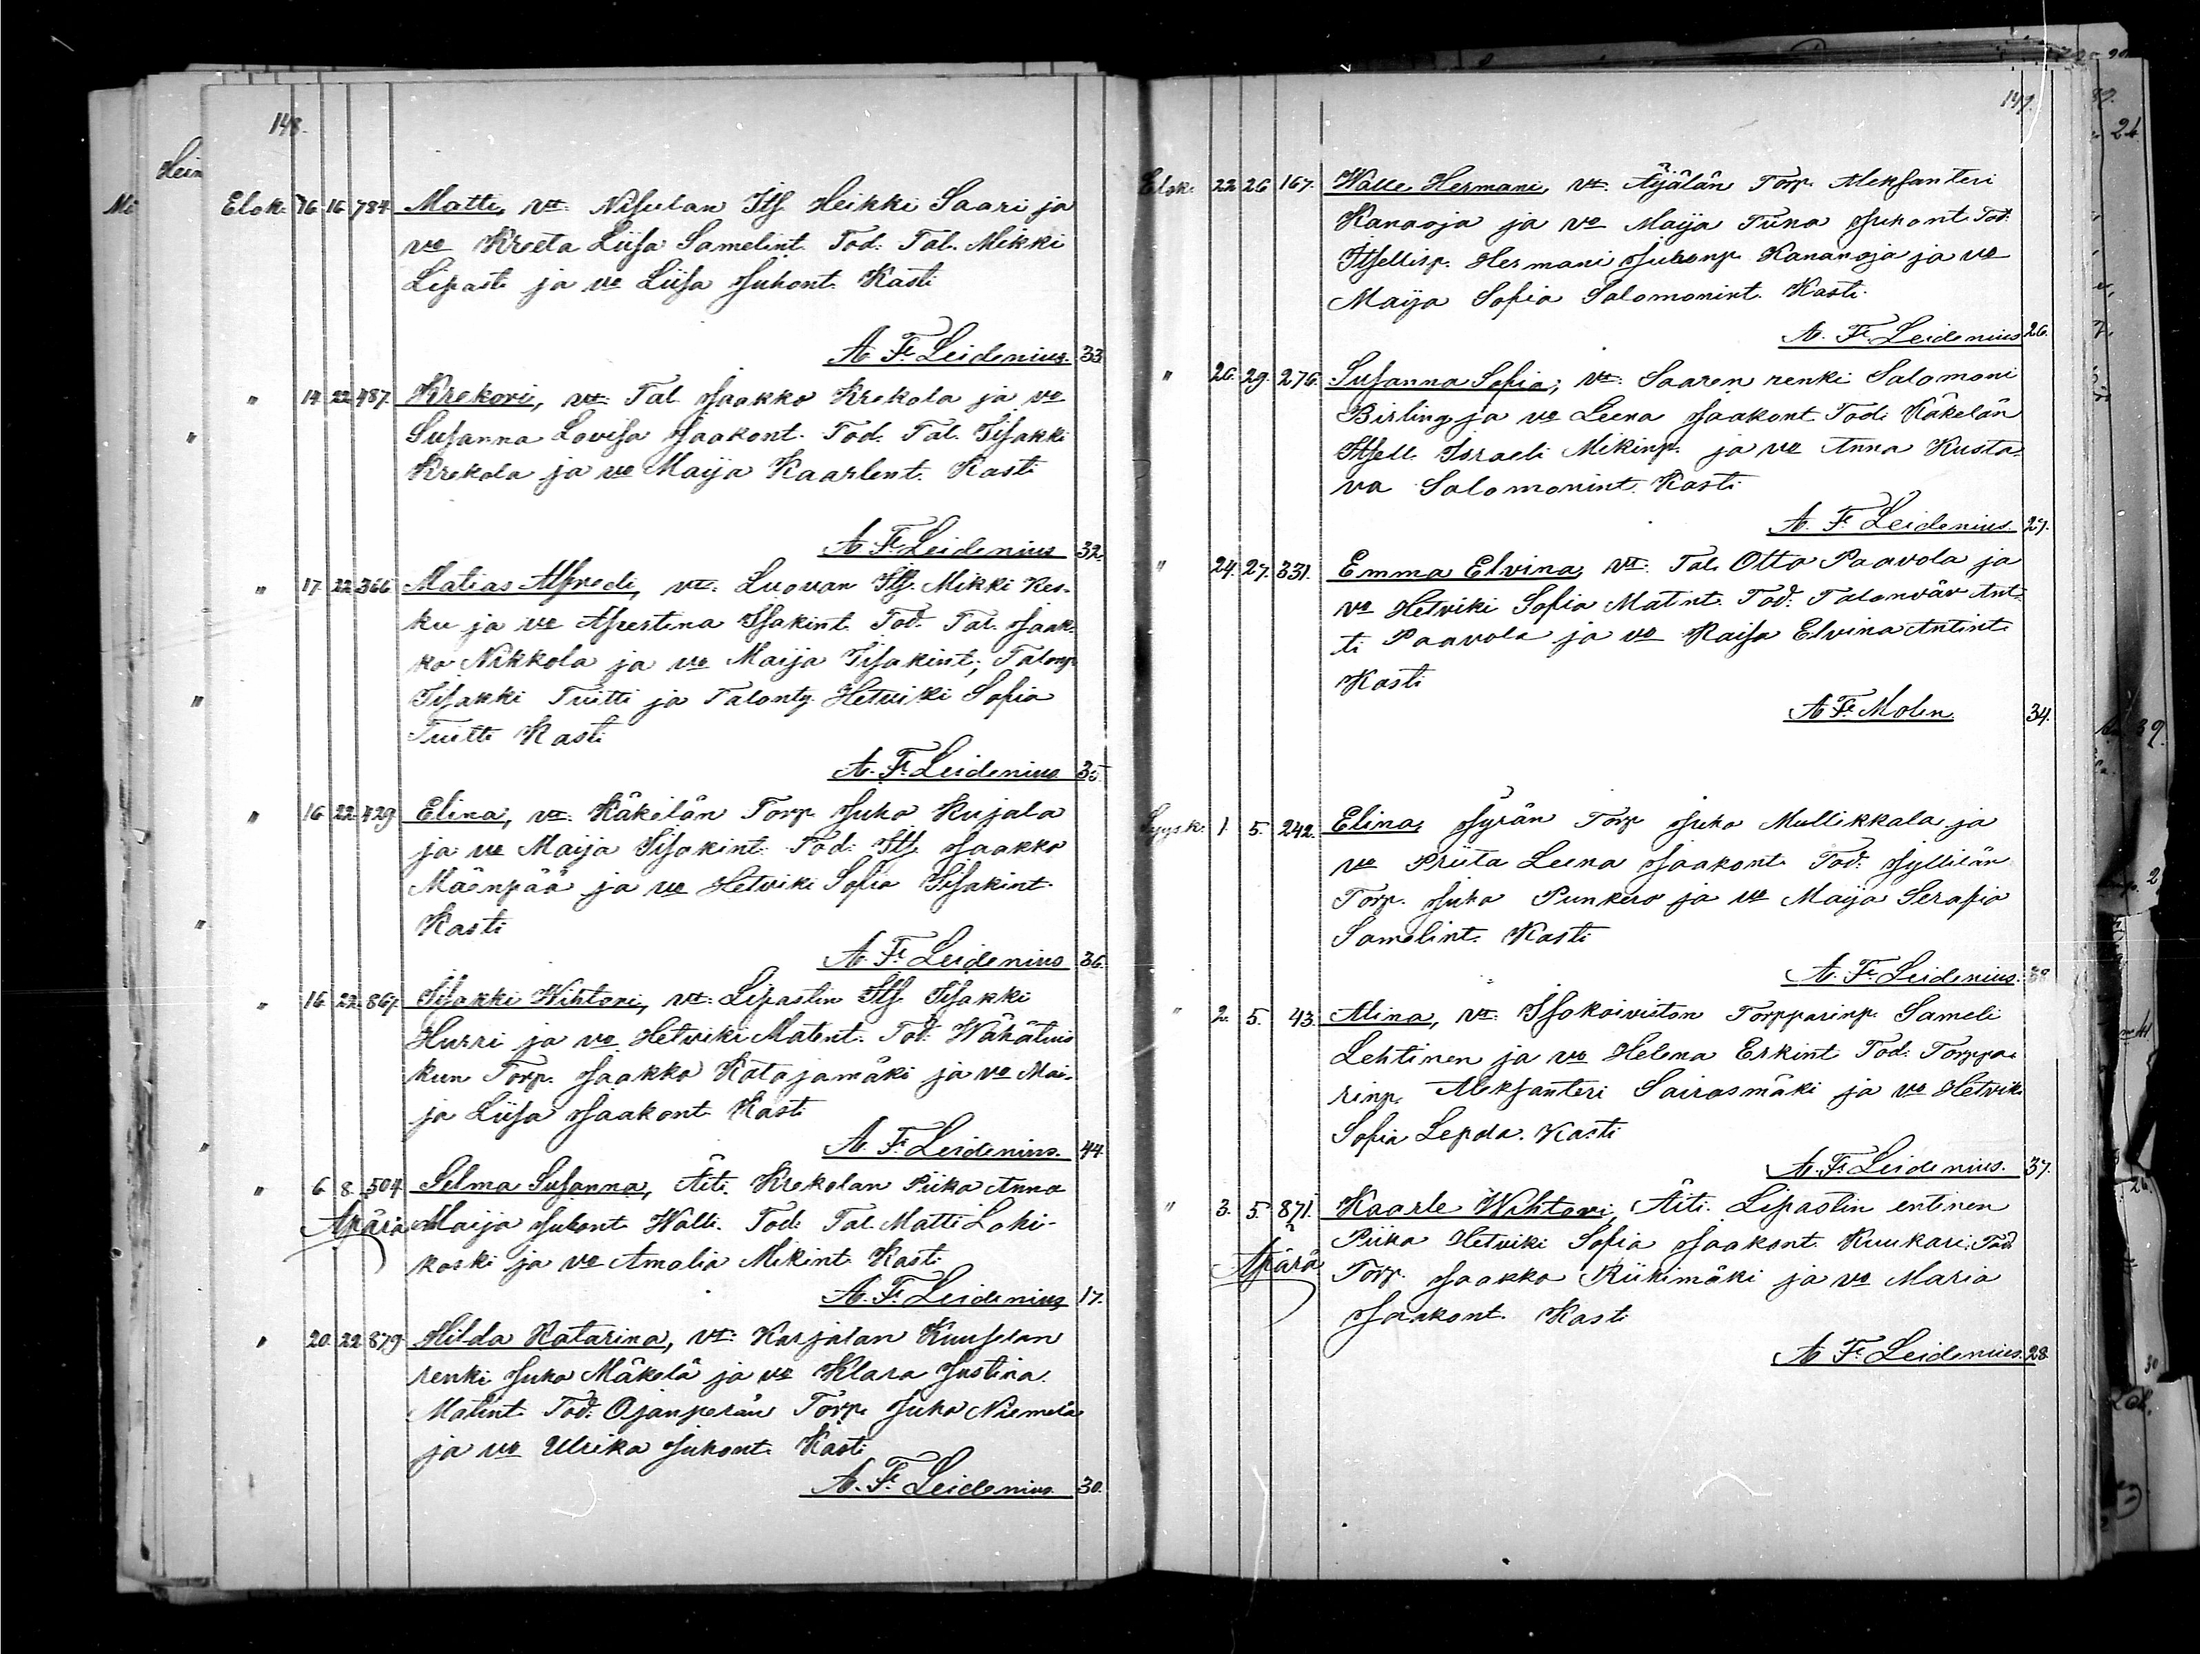 148.
Elok. 16 16 784 Matti, vt: Nisulan Its. Heikki Saari ja
vo Kreeta Liisa Samelint. Tod: Tal. Mikki
Lipasti ja vo Liisa Juhont. Kasti
A. F. Leidenius. 33
" 14 22 487. Krekori, vt: Tal. Jaakko Krekola ja vo
Susanna Lovisa Jaakont. Tod. Tal. Iisakki
Krekola ja vo Maija Kaarlent. Kasti
A. F. Leidenius 32.
" 17. 22 366 Matias Alfredi, vt: Luovan Its. Mikki Kes-
ku ja vo Isakint. Tod. Tal. Jaak-
ko Nikkola ja vo Maija Iisakint; Talonp
Iisakki Tuitti ja Talonty. Hetviki Sofia
Tuitti Kasti
A. F. Leidenius 35
" 16 22 429 Elina, vt: Käkelän Torp. Juho Kujala
ja vo Maija Iisakint. Tod: Its. Jaakko
Mäenpää ja vo Hetviki Sofia Iisakint.
Kasti
A. F. Leidenius 36.
" 16. 22. 867. Iisakki Wihtori, vt: Lipastin Its. Iisakki
Hurri ja vo Hetviki Matint. Tod:
kun Torp. Jaakko Katajamäki ja vo Mai-
ja Liisa Jaakont. Kasti
A. F. Leidenius. 44
" 6 8. 504 Selma Susanna, Äiti. Krekolan Piika Anna
Äpärä Maija Juhont. Walli. Tod: Tal. Matti Lohi-
koski ja vo Amalia Mikint. Kasti
A. F. Leidenius 17.
" 20. 22 879 Hilda Katarina, vt: Karjalan Kuuselan
renki Juho Mäkelä ja vo Klara Justina
Matint. Tod: Ojanperän Torp. Juho Niemelä
ja vo Ulrika Juhont. Kasti
A. F. Leidenius 30.
149.
Elok. 22 26 167. Walle Hermani, vt: Äijälän Torp. Aleksanteri
Kanaoja ja vo Maija Tiina Juhont. Tod:
Itsellisp. Hermani Juhonp. Kananoja ja vo
Maija Sofia Salomonint. Kasti.
A. F. Leidenius 26.
" 26. 29. 276. Susanna Sofia; vt: Saaren renki Salomoni
Birling ja vo Leena Jaakont. Tod: Käkelän
Itsell. Israeli Mikinp. ja vo Anna Kusta-
va Salomonint. Kasti
A. F. Leidenius 29.
" 24. 27. 331. Emma Elvina, vt: Tal. Otto Paavola ja
vo Hetviki Sofia Matint. Tod: Talonväv Ant-
ti Paavola ja vo Kaisa Elvina Antint.
Kasti
A. F. Molin. 34.
Syysk. 1. 5. 242. Elina, Jyrän Torp Juho Mullikkala ja
vo Priita Leena Jaakont. Tod: Jyllilän
Torp. Juho Punkero ja vo Maija Serafia
Samelint. Kasti
A. F. Leidenius.
" 2. 5. 43. Alina, vt: Isokoiviston Torpparinp. Sameli
Lehtinen ja vo Helena Erkint. Tod: Torppa-
rinp. Aleksanteri Sairasmäki ja vo Hetviki
Sofia Lepda. Kasti
A. F. Leidenius. 37.
" 3. 5 871. Kaarle Wihtori, Äiti. Lipastin entinen
Äpärä Piika Hetviki Sofia Jaakont. Kuukari. Tod
Torp. Jaakko Riikimäki ja vo Maria
Jaakont. Kasti
A. F. Leidenius. 28